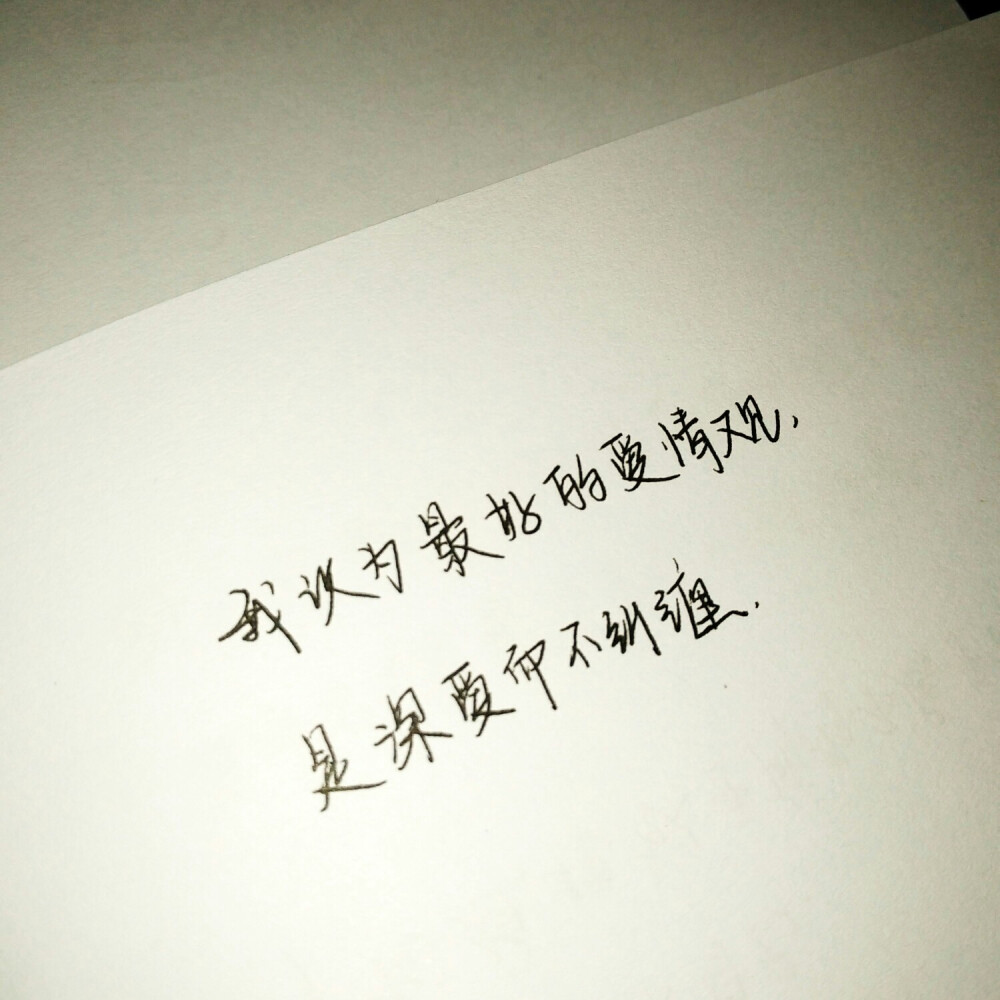 我认为最好的爱情观,
是深爱而不纠缠.